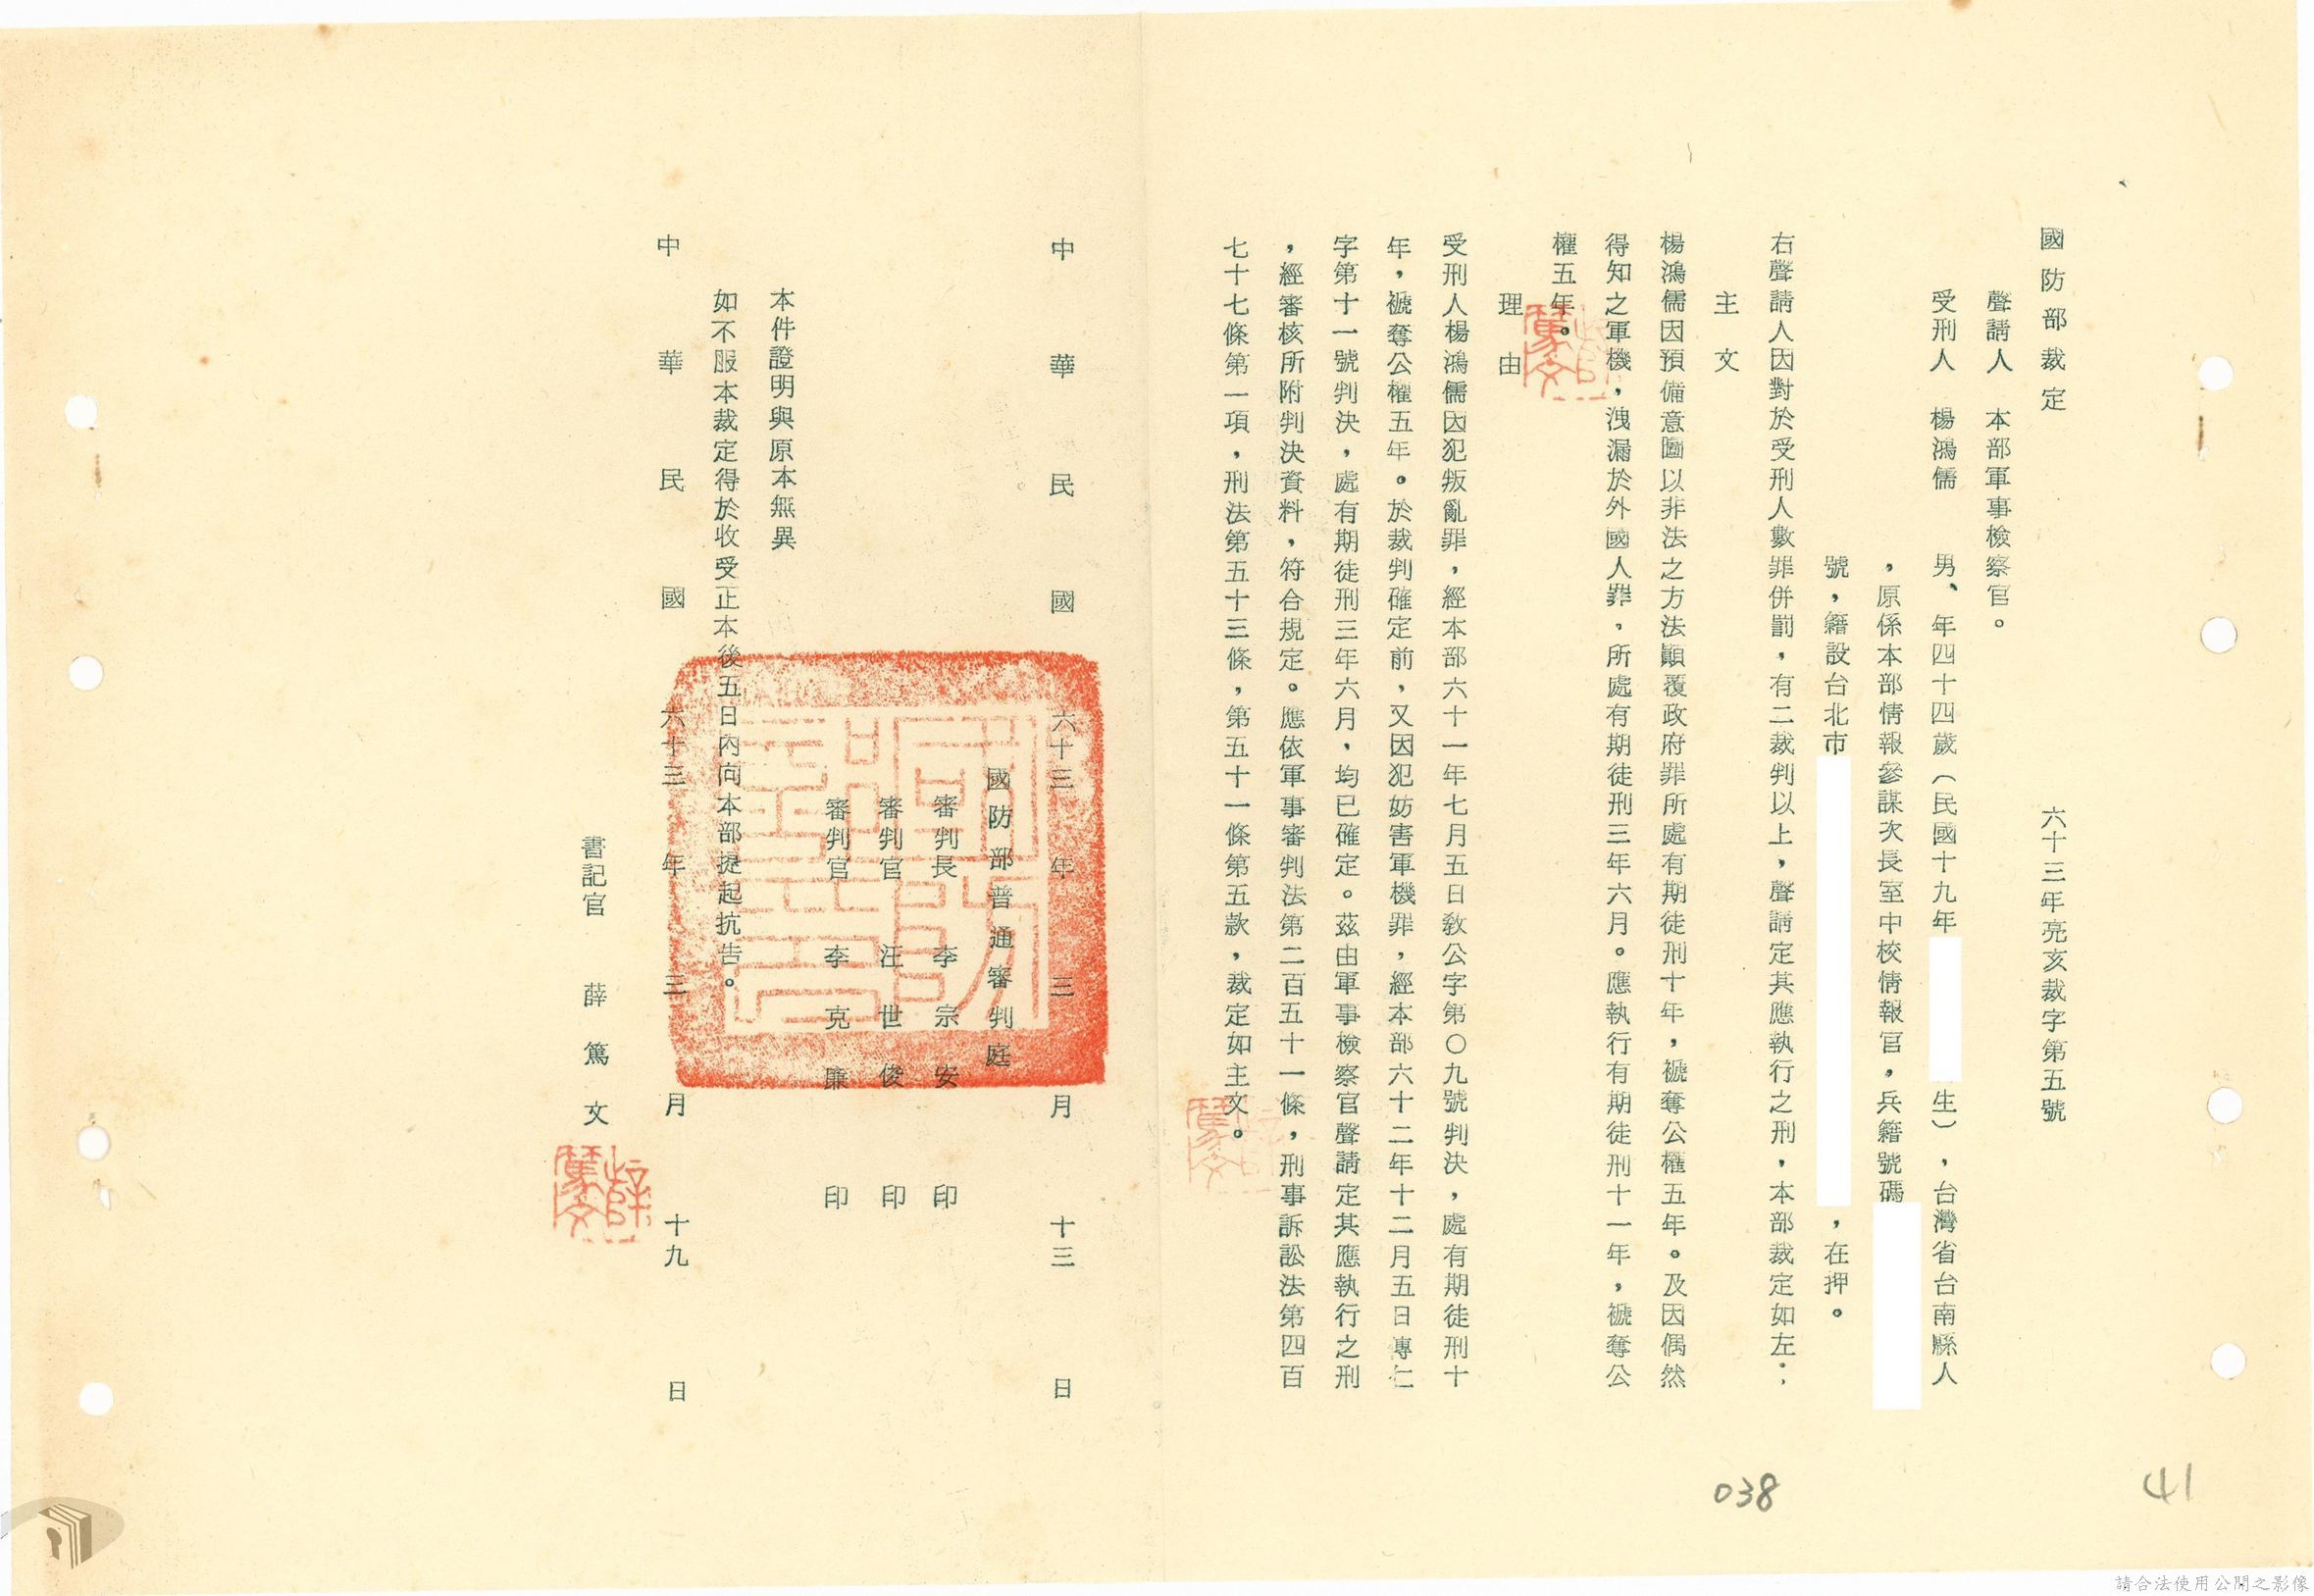 國防部裁定 六十三年亮亥裁字第五號
聲請人 本部軍事檢察官。
受刑人 楊鴻儒 男、年四十四歲(民國十九年 生),台灣省台南縣人
,原係本部情報參謀次長室中校情報官,兵籍號碼
號,籍設台北市 ,在押。
右聲請人因對於受刑人數罪併罰,有二裁判以上,聲請定其應執行之刑,本部裁定如左:
主文
楊鴻儒因預備意圖以非法之方法顚覆政府罪所處有期徒刑十年,褫奪公權五年。及因偶然
得知之軍機,洩漏於外國人罪,所處有期徒刑三年六月。應執行有期徒刑十一年,褫奪公
權五年。
理由
受刑人楊鴻儒因犯叛亂罪,經本部六十一年七月五日敎公字第〇九號判決,處有期徒刑十
年,褫奪公權五年。於裁判確定前,又因犯妨害軍機罪,經本部六十二年十二月五日專仁
字第十一號判決,處有期徒刑三年六月,均已確定。茲由軍事檢察官聲請定其應執行之刑
,經審核所附判決資料,符合規定。應依軍事審判法第二百五十一條,刑事訴訟法第四百
七十七條第一項,刑法第五十三條,第五十一條第五款,裁定如主文。
中華民國六十三年三月十三日
國防部普通審判庭
審判長 李宗安 印
審判官 汪世俊 印
審判官 李克廉 印
本件證明與原本無異
如不服本裁定得於收受正本後五日內向本部提起抗告。
中華民國六十三年三月十九日
書記官 薛篤文
薛篤文
038
41
請合法使用公開之影像